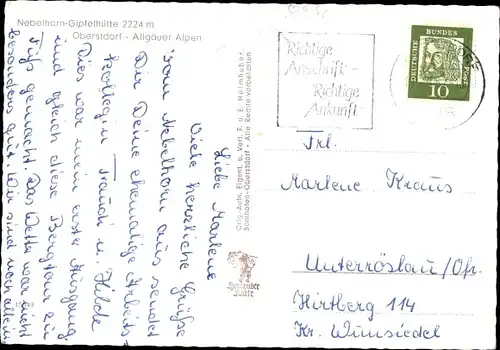 Nebelhorn-Gipfelhütte 2224 m
Oberstdorf - Allgäuer Alpen
Liebe Marlene
Viele herzliche Grüße
vom Nebelhorn aus sendet
Dir Deine ehemalige Arbeits=
kollegin Traudi u. Hilde
Dies war mein erster Ausgang
und gleich diese Bergtour zu
Fuß gemacht. Das Wetter war nicht
besonders gut. Wir sind noch allein
Orig.-Aufn. Eigent. u. Verl. F. u. E. Heimhuber
Sonthofen-Oberstdorf - Alle Rechte vorbehalten
Heimhuber
Karte
Richtige
Anschrift -
Richtige
Ankunft
DEUTSCHE BUNDESPOST
10
Frl.
Marlene Kraus
Unterröslau/Ofr.
Hirtberg 114
Kr. Wunsiedel